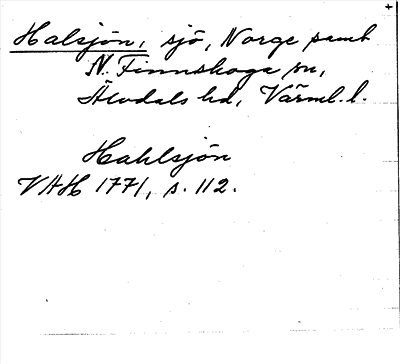 Halsjön, sjö, Norge samt
N. Finnskoga sn,
Älvdals hd, Värml. l.
Hahlsjön
VAH 1771, s. 112.